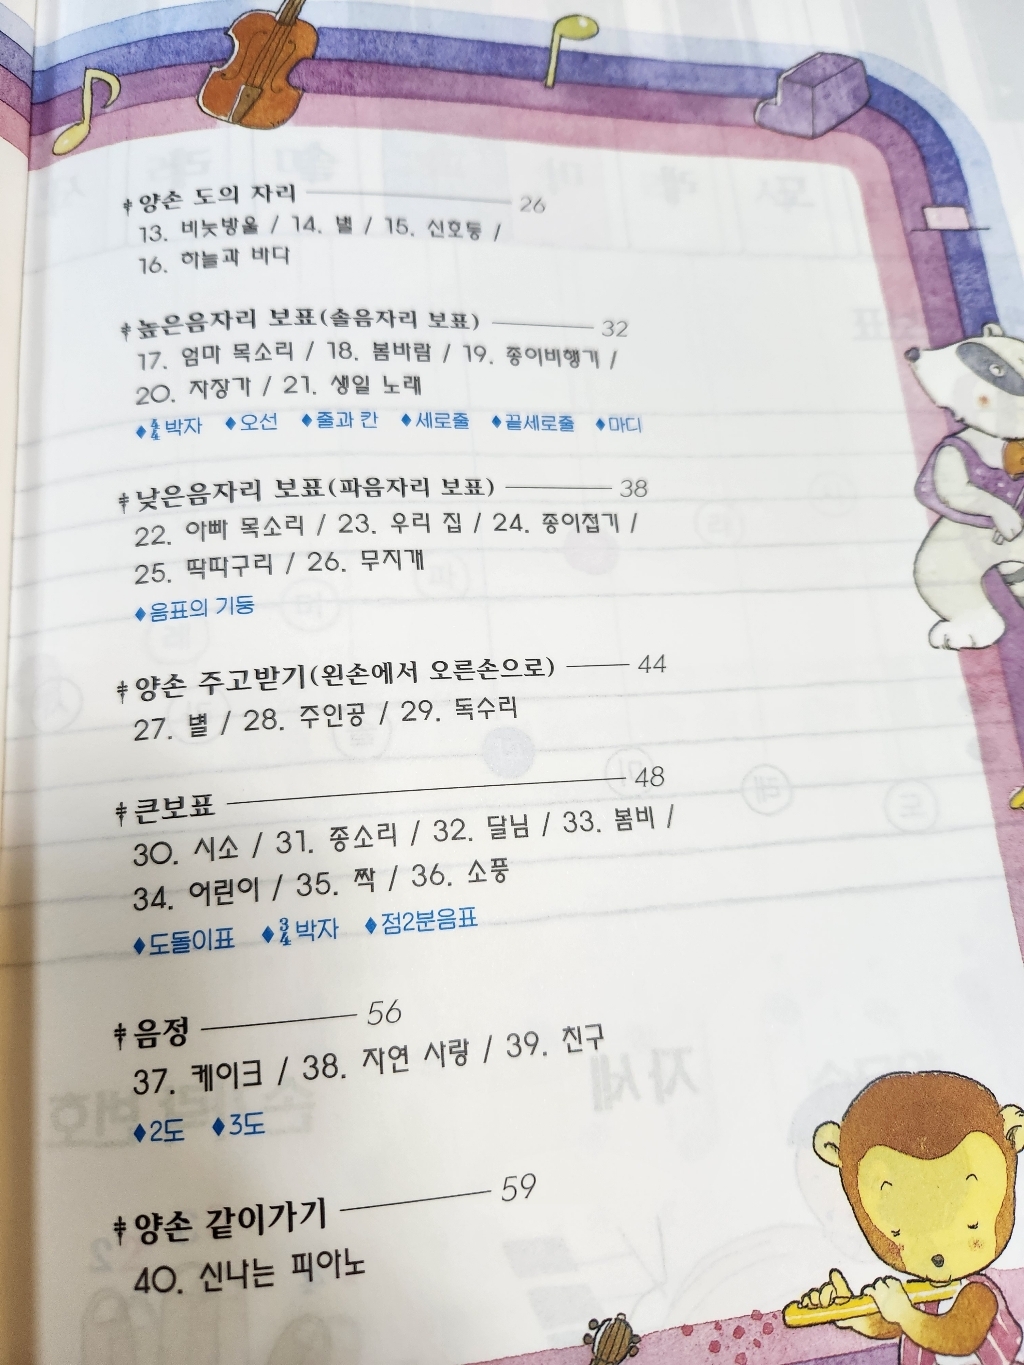 양손 도의 자리 26
13. 비눗방울 / 14. 별 / 15. 신호등 /
16. 하늘과 바다
높은음자리 보표(솔음자리 보표) 32
17. 엄마 목소리 / 18. 봄바람 / 19. 종이비행기 /
20. 자장가 / 21. 생일 노래
♦4/4박자 ♦오선 ♦줄과 칸 ♦세로줄 ♦끝세로줄 ♦마디
낮은음자리 보표(파음자리 보표) 38
22. 아빠 목소리 / 23. 우리 집 / 24. 종이접기 /
25. 딱따구리 / 26. 무지개
♦음표의 기둥
양손 주고받기(왼손에서 오른손으로) 44
27. 별 / 28. 주인공 / 29. 독수리
큰보표 48
30. 시소 / 31. 종소리 / 32. 달님 / 33. 봄비 /
34. 어린이 / 35. 짝 / 36. 소풍
♦도돌이표 ♦3/4박자 ♦점2분음표
음정 56
37. 케이크 / 38. 자연 사랑 / 39. 친구
♦2도 ♦3도
양손 같이가기 59
40. 신나는 피아노